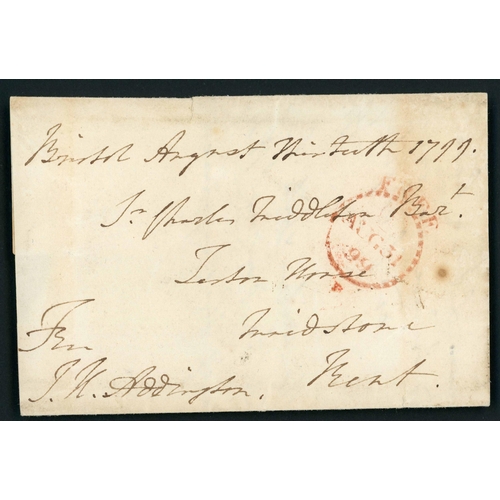 Bristol August Thirtieth 1799.
Sr. Charles Middleton Bart.
Teston House
Maidstone
Kent.
Free
J. H. Addington.
FREE
AUG 31
99